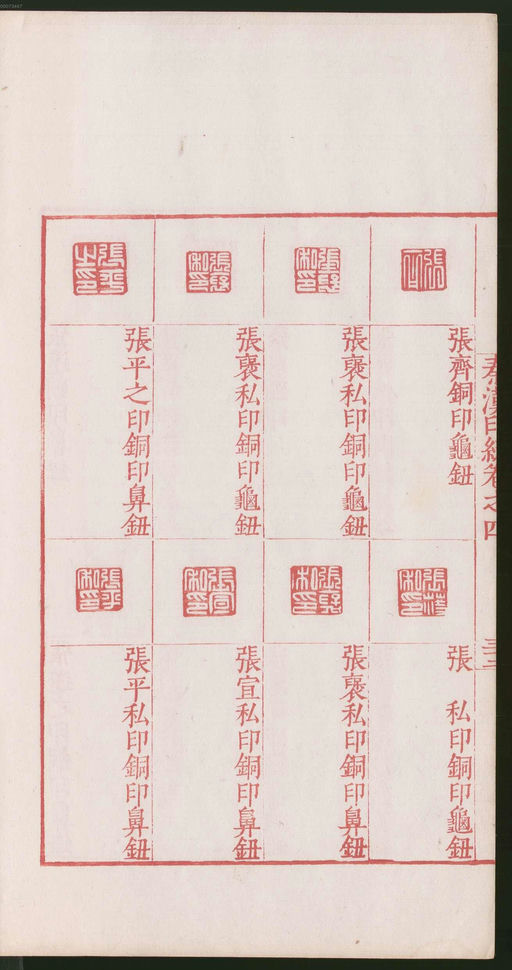 00073467
秦漢印統卷之四
三二
張齊銅印龜鈕
張褒私印銅印龜鈕
張褒私印銅印龜鈕
張平之印銅印鼻鈕
張　私印銅印龜鈕
張褒私印銅印鼻鈕
張宣私印銅印鼻鈕
張平私印銅印鼻鈕